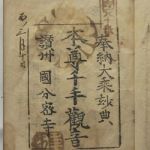 奉納大乗妙典
本尊千手觀音
讃州 國分寺